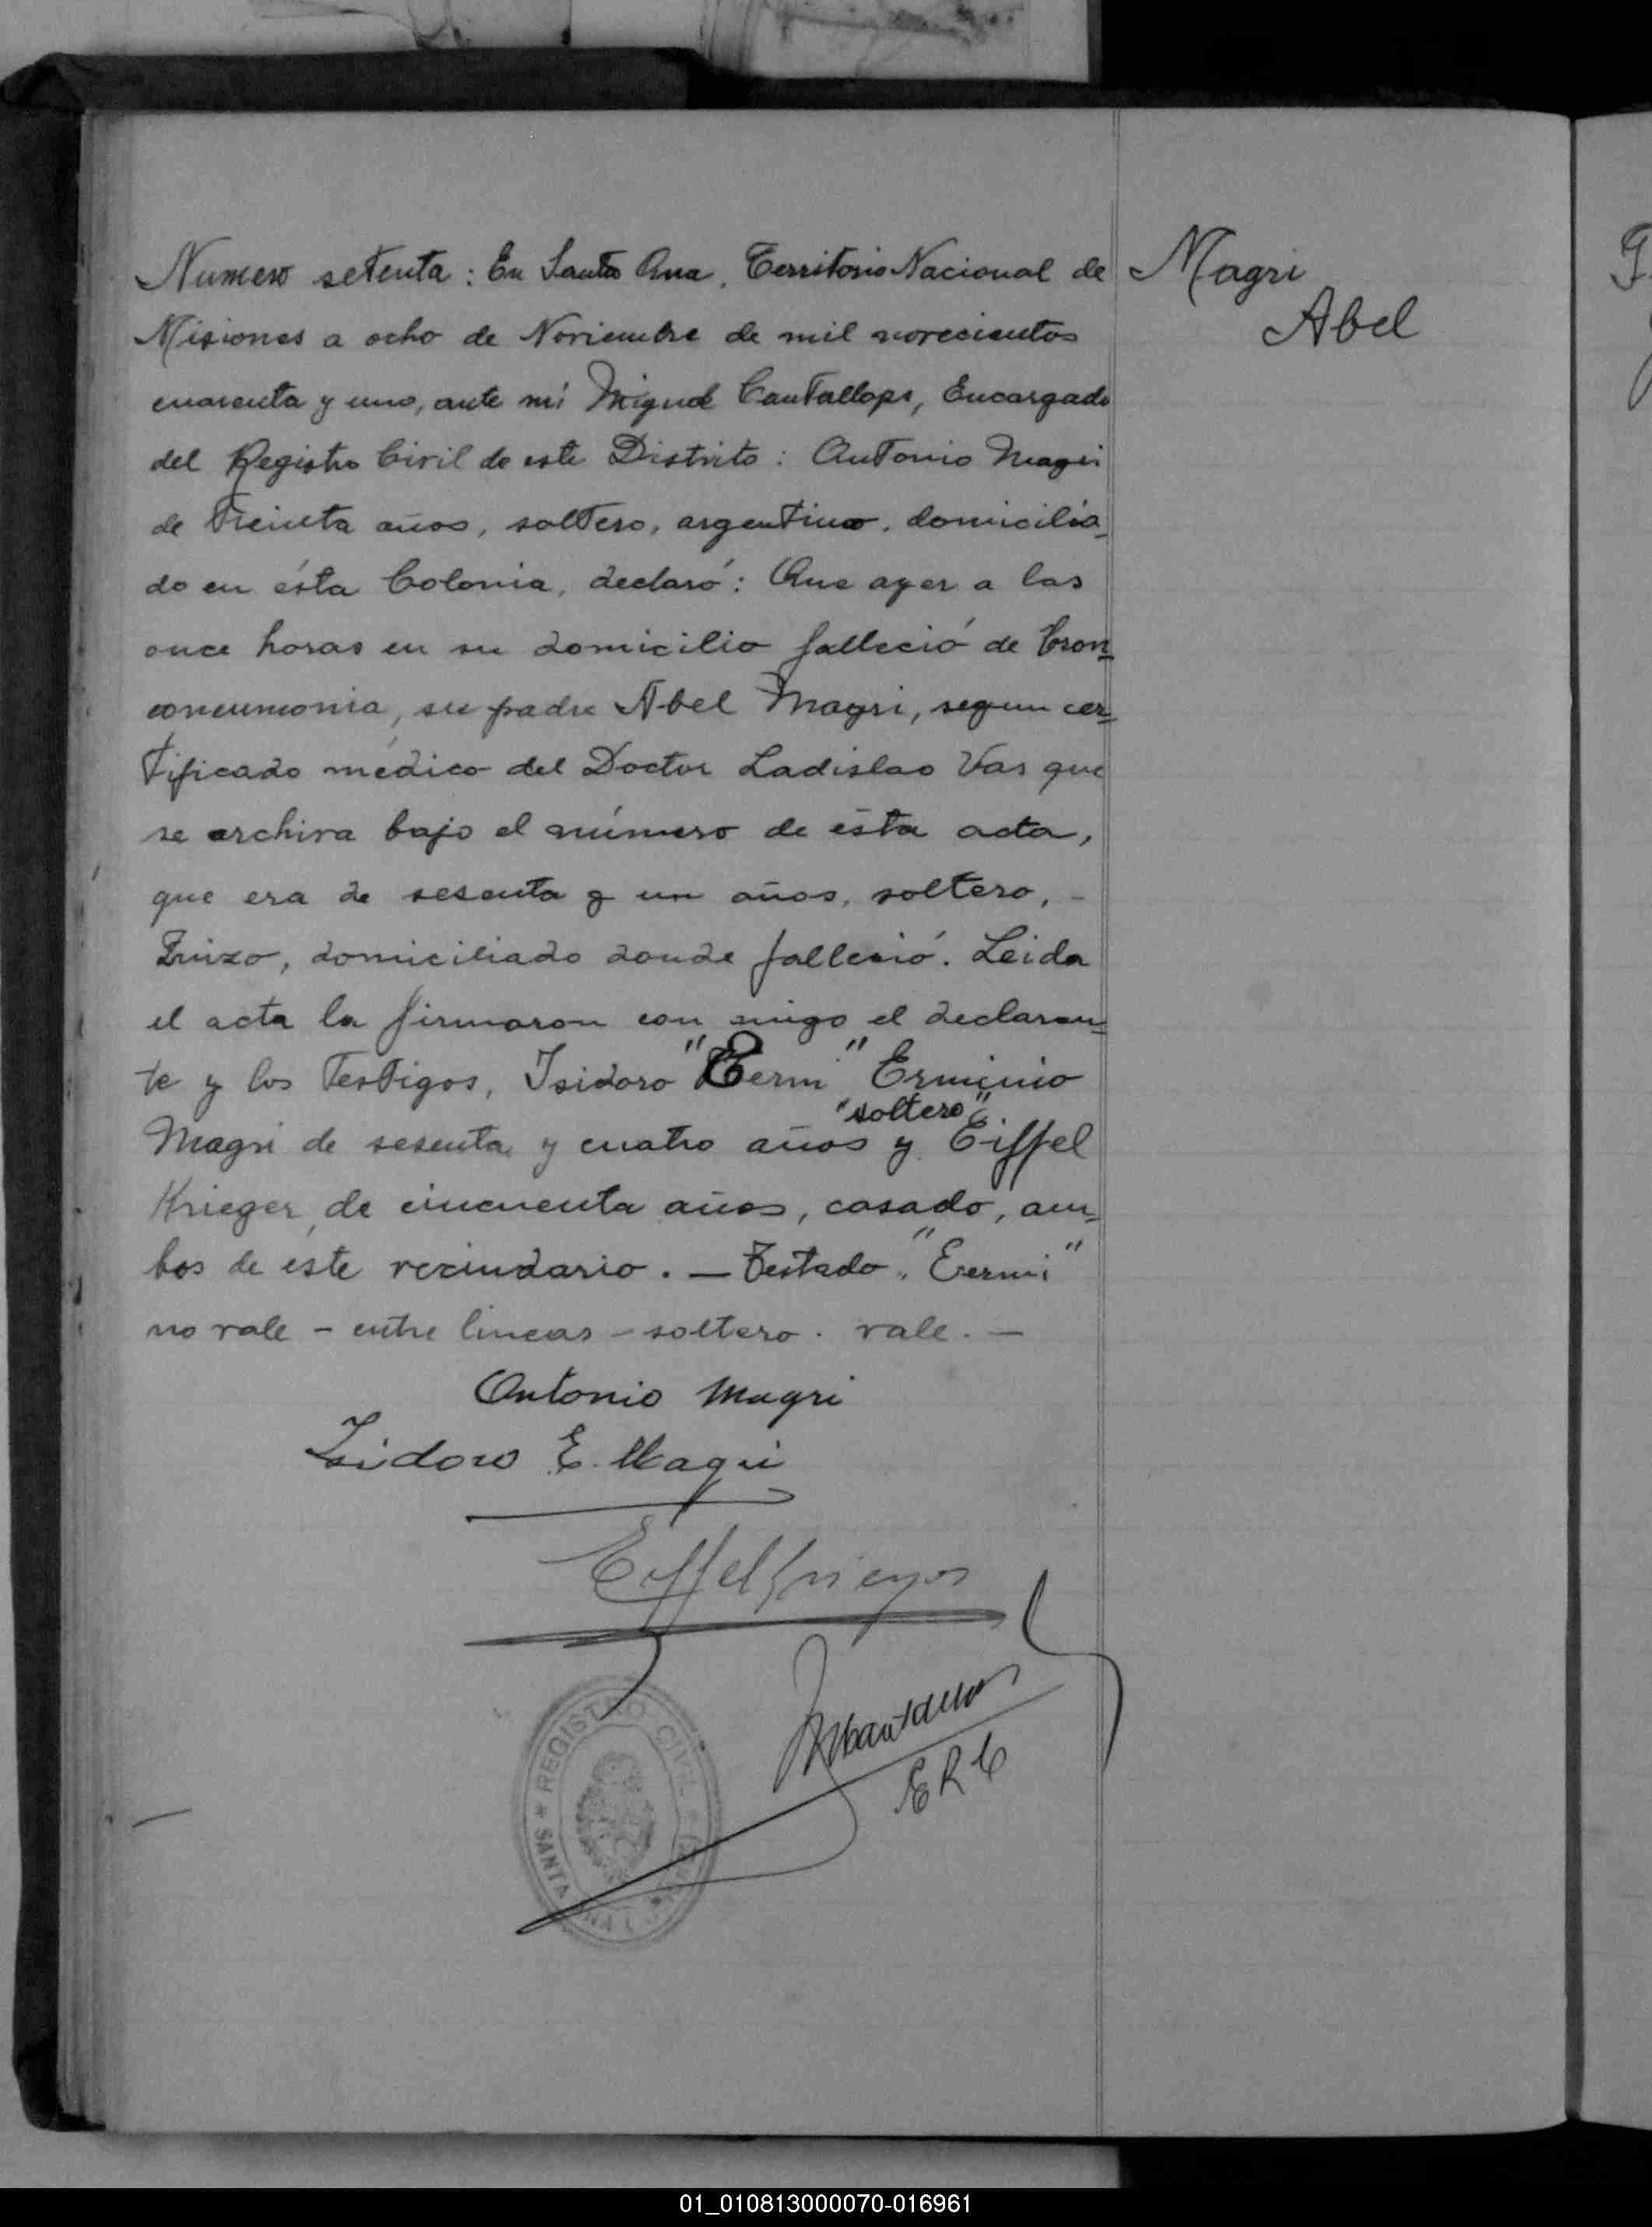 Numero setenta: En Santa Ana, Territorio Nacional de
Misiones a ocho de Noviembre de mil novecientos
cuarenta y uno, ante mí Miguel Cantallops, Encargado
del Registro Civil de este Distrito: Antonio Magri
de treinta años, soltero, argentino, domicilia
do en ésta Colonia, declaró: Que ayer a las
once horas en su domicilio falleció de bron
coneumonia, su padre Abel Magri, segun cer
tificado médico del Doctor Ladislao Vas que
se archiva bajo el número de ésta acta,
que era de sesenta y un años, soltero, -
Suizo, domiciliado donde falleció. Leida
el acta la firmaron con migo el declaran
te y los testigos, Isidoro " " Erminio
"soltero"
Magri de sesenta y cuatro años y Eiffel
Krieger, de cincuenta años, casado, am
bos de éste vecindario. — Testado "Eermi"
no vale - entre lineas - soltero. vale. —
Antonio Magri
Isidoro E. Magri
Eiffel Krieger
MCantallops
ERC
* REGISTRO CIVIL * SANTA ANA
Magri
Abel
01_010813000070-016961